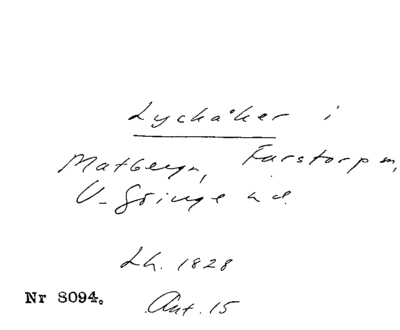 Lyckåker i
Matbergn, Farstorp sn,
V. Göinge hd.
Lh. 1828
Nr 8094. Ant. 15